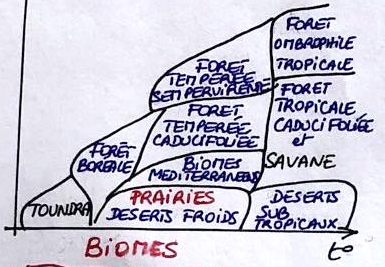 FORET
OMBROPHILE
TROPICALE
FORET
TEMPEREE
SEMPERVIRENTE
FORET
TROPICALE
CADUCIFOLIÉE
et
SAVANE
FORET
TEMPEREE
CADUCIFOLIÉE
FORET
BOREALE
BIOMES
MEDITERRANEENS
TOUNDRA
PRAIRIES
DESERTS FROIDS
DESERTS
SUB
TROPICAUX
BIOMES
t°